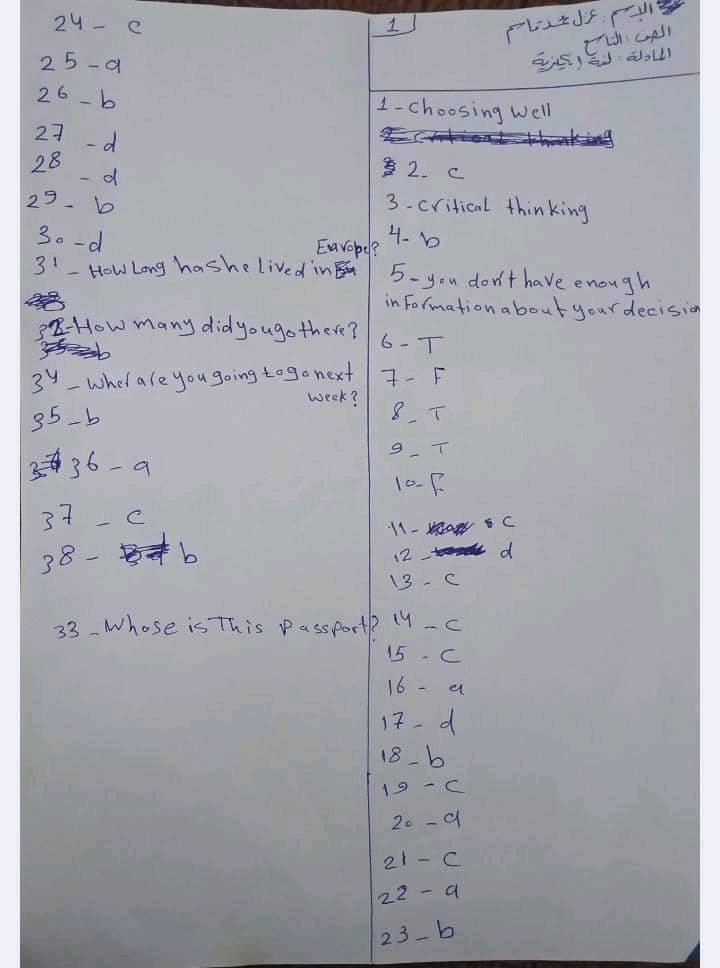 1
الإسم : غزل محمد قاسم
الصف : التاسع
المادة : لغة إنجليزية
1 - Choosing Well
2 critical thinking
2 - c
3 - critical thinking
4 - b
5 - you don't have enough
information about your decision
6 - T
7 - F
8 - T
9 - T
10 - F
11 - c
12 - d
13 - c
14 - c
15 - c
16 - a
17 - d
18 - b
19 - c
20 - a
21 - c
22 - a
23 - b
24 - c
25 - a
26 - b
27 - d
28 - d
29 - b
30 - d
31 - How Long has he lived in Eurvope?
32 - How many did you go there?
34 - Wher are you going to go next
week?
35 - b
36 - a
37 - c
38 - b
33 - Whose is This Passport?